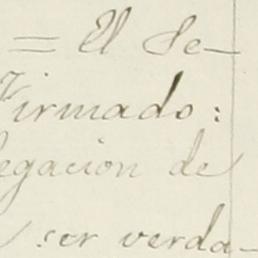 = El Se-
Firmado:
legacion de
ser verda-